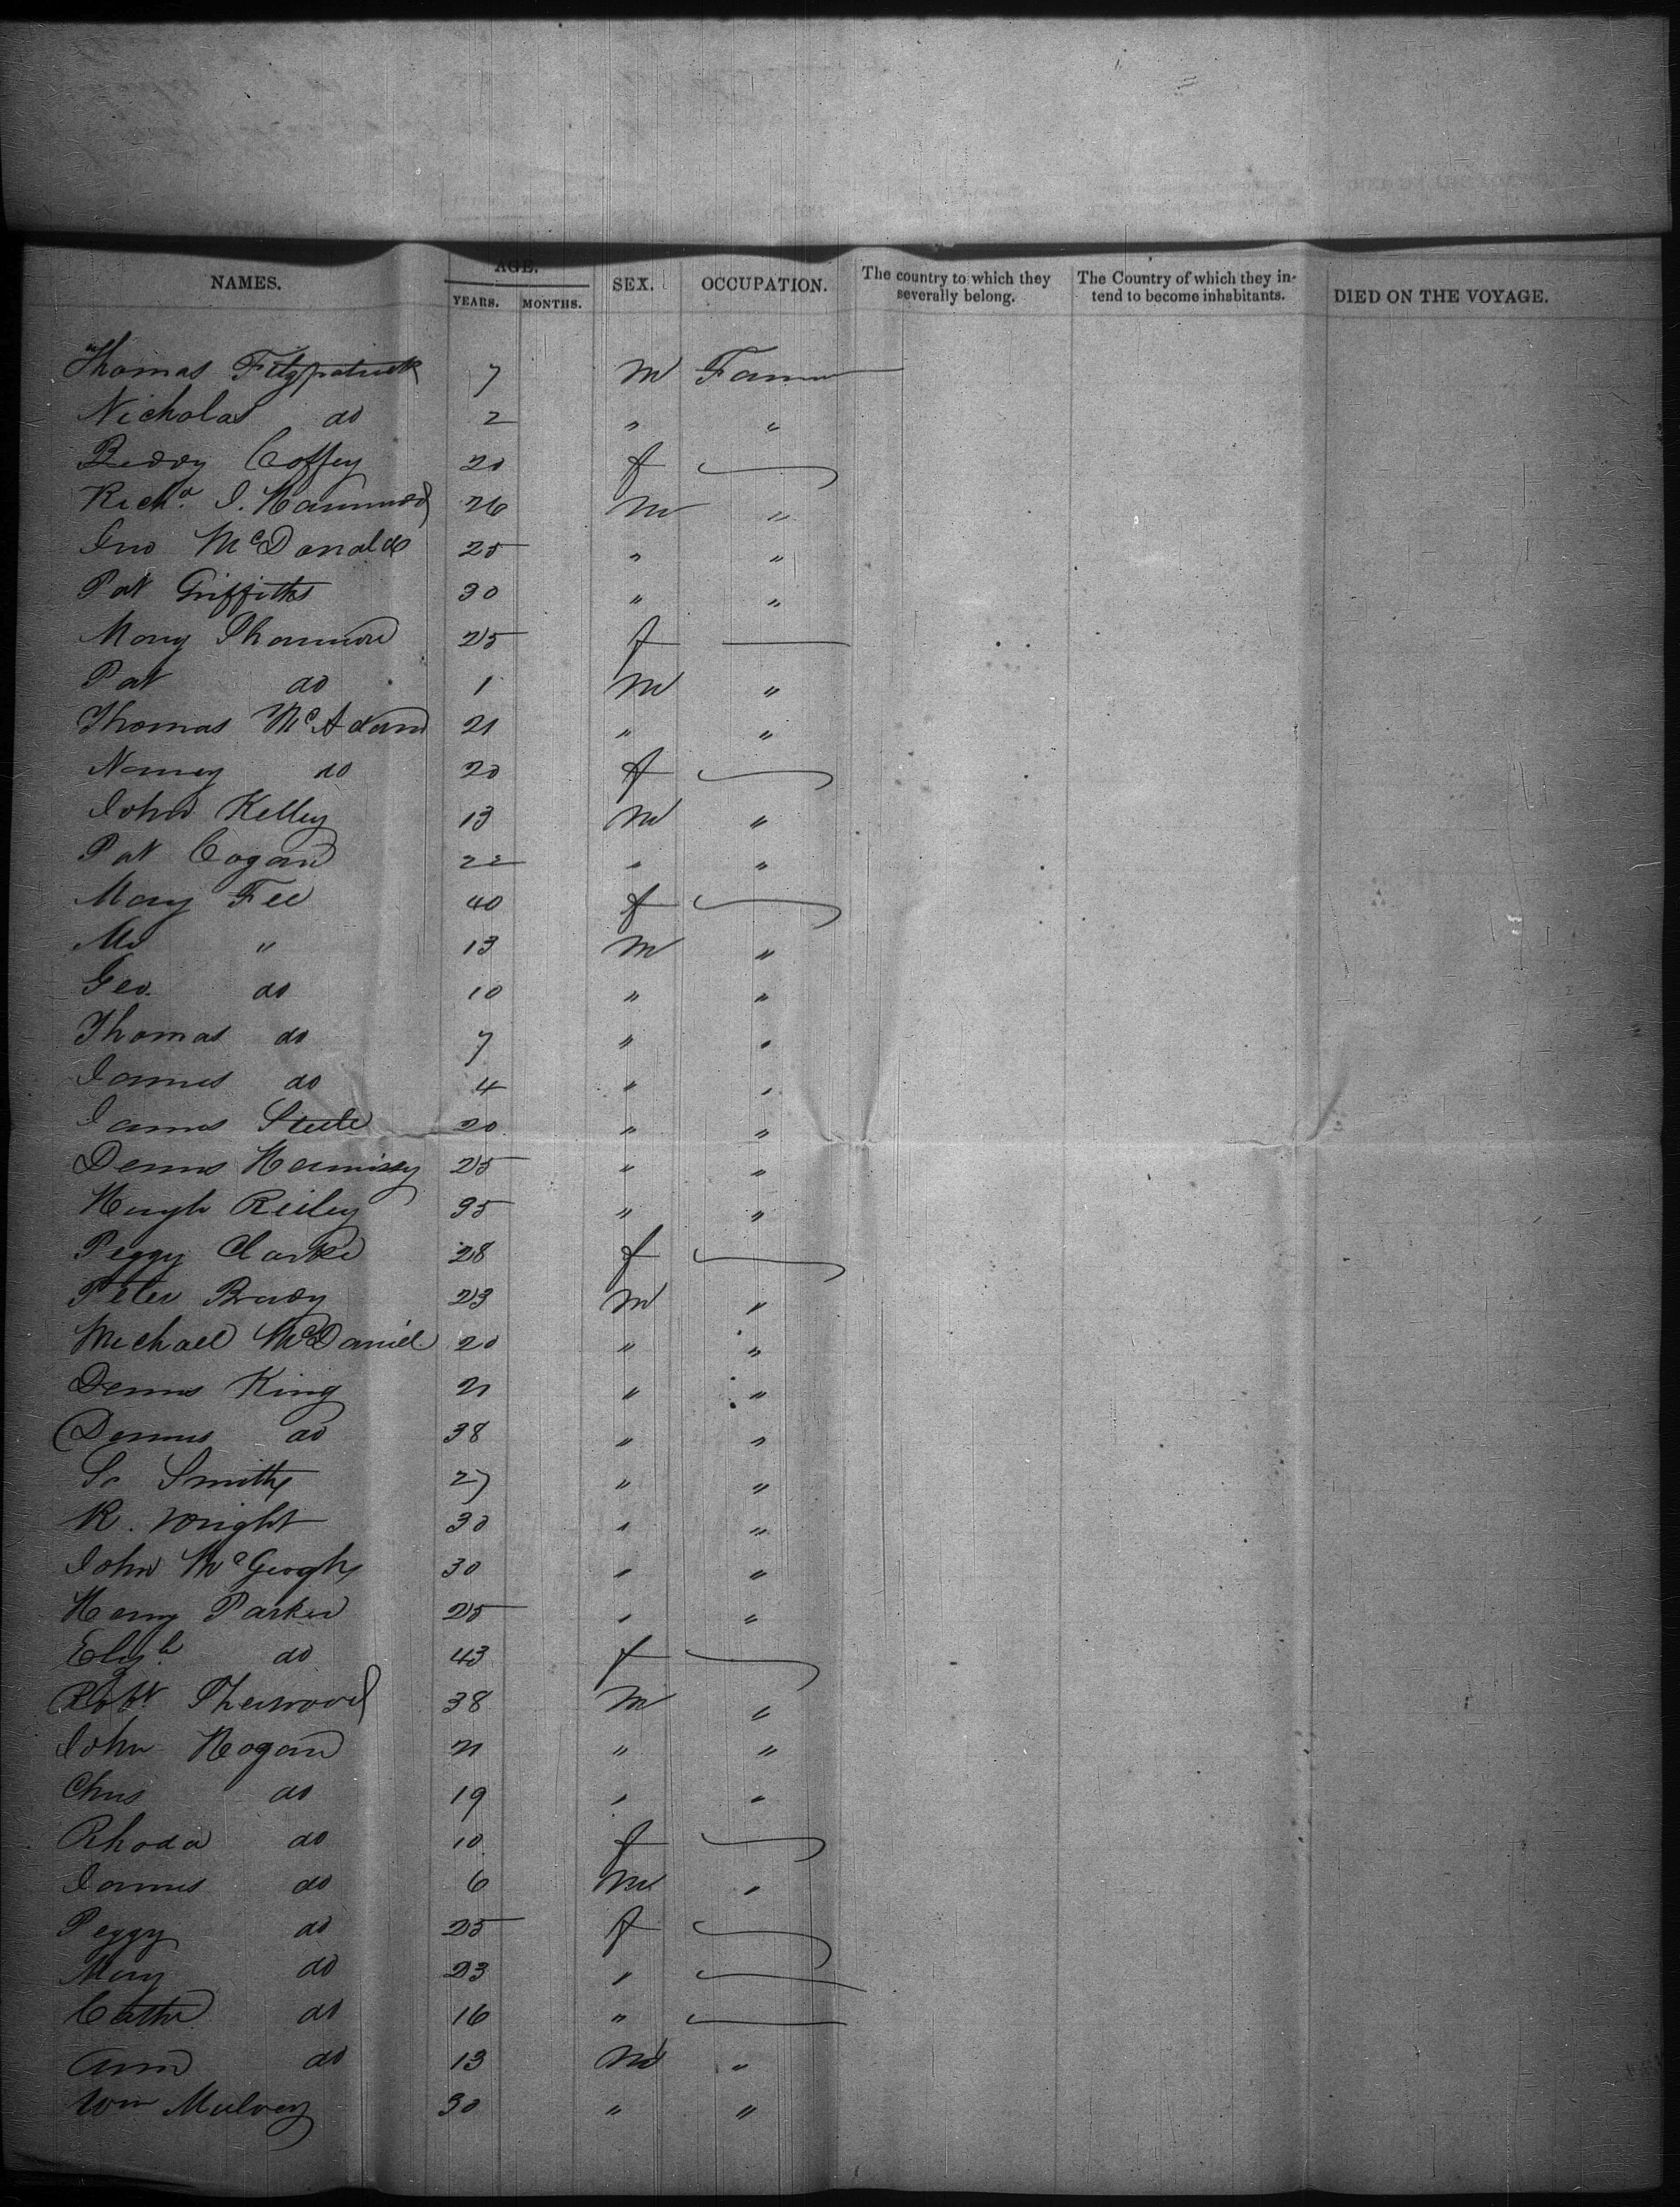 NAMES. AGE. YEARS. MONTHS. SEX. OCCUPATION. The country to which they severally belong. The Country of which they intend to become inhabitants. DIED ON THE VOYAGE.
Thomas Fitzpatrick 7 M Farmer
Nicholas do 2 " "
Biddy Coffey 20 f
Richd. I. Hammond 26 M "
Jno McDonald 25 " "
Pat Griffiths 30 " "
Mary Shannon 25 f
Pat do 1 M "
Thomas McAdam 21 " "
Nancy do 20 f
John Kelley 13 M "
Pat Cogan 22 " "
Mary Fee 40 f
" 13 M "
Geo. do 10 " "
Thomas do 7 " "
James do 4 " "
James Steele 20 " "
Dennis Hennissy 25 " "
Hugh Reiley 35 " "
Peggy Clarke 28 f
Peter Brady 23 M "
Michael McDaniel 20 " "
Dennis King 21 " "
Dennis do 38 " "
Smith 27 " "
R. Wright 30 " "
John McGeogh 30 " "
Henry Parker 25 " "
Elizh. do 43 f
Robt Sherwood 38 M "
John Hogan 21 " "
Chrs do 19 " "
Rhoda do 10 f
James do 6 M "
Peggy do 25 f
Mary do 23 "
Cathe do 16 "
Ann do 13 M "
Wm Mulvey 30 " "